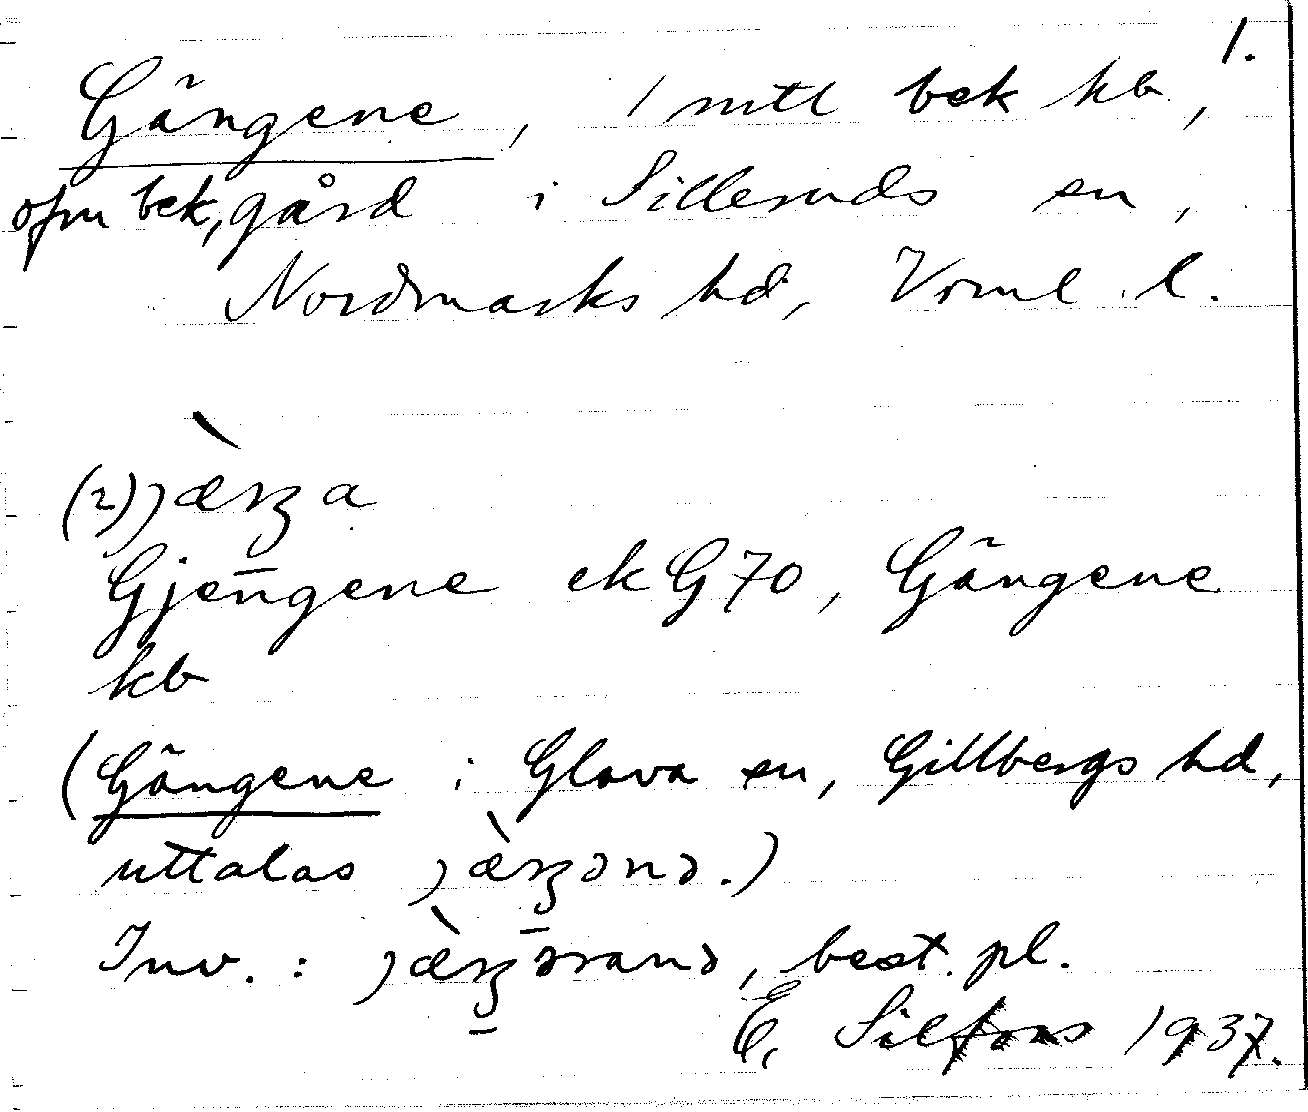 1.
Gängene, 1 mtl bek kb,
ofm bek, gård i Silleruds sn,
Nordmarks hd, Vrml. l.
(2) jæ̀ŋa
Gjengene ek G 70, Gängene
kb
(Gängene i Glava sn, Gillbergs hd,
uttalas jæ̀ŋənə.)
Inv.: jæ̀ŋəranə, best. pl.
E. Silfors 1937.